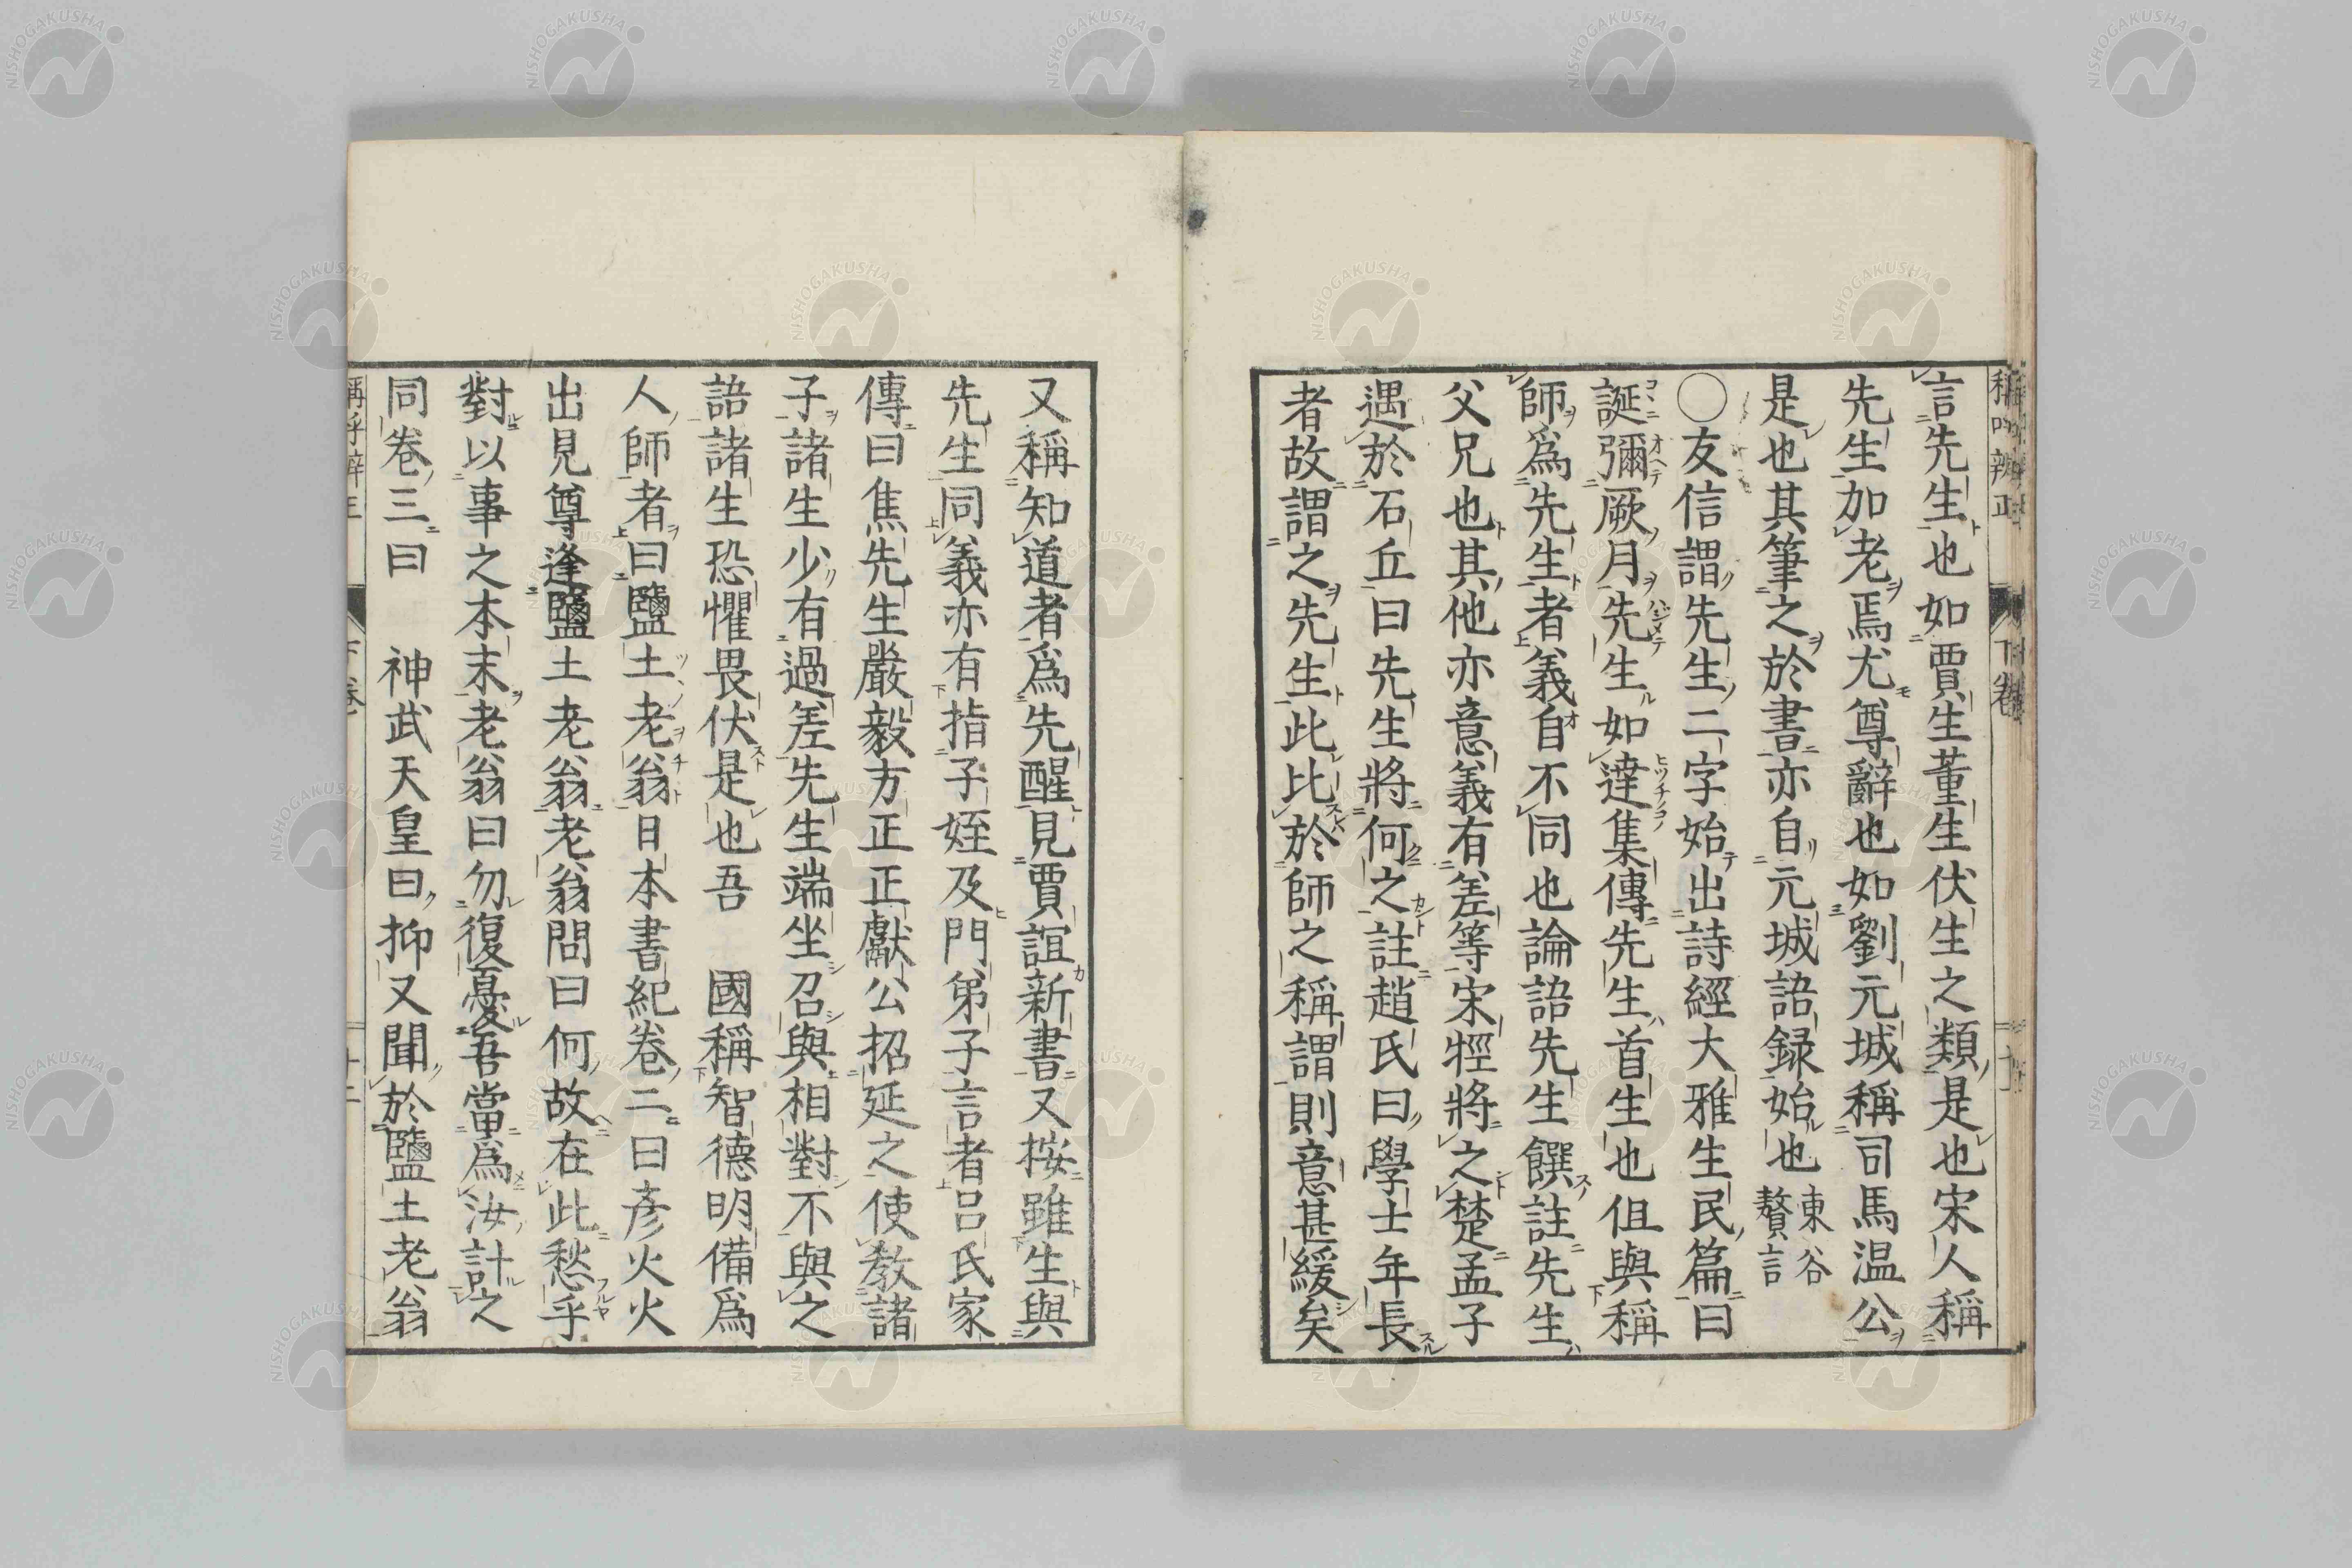 稱呼辨正
下卷
言先生也如賈生董生伏生之類是也宋人稱
先生加老焉尤尊辭也如劉元城稱司馬温公
是也其筆之於書亦自元城語録始也東谷贅言
〇友信謂先生二字始出詩經大雅生民篇曰
誕彌厥月先生如達集傳先生首生也但與稱
師爲先生者義自不同也論語先生饌註先生
父兄也其他亦意義有差等宋牼將之楚孟子
遇於石丘曰先生將何之註趙氏曰學士年長
者故謂之先生此比於師之稱謂則意甚緩矣
又稱知道者爲先醒見賈誼新書又按雖生與
先生同義亦有指子姪及門弟子言者呂氏家
傳曰焦先生嚴毅方正正獻公招延之使教諸
子諸生少有過差先生端坐召與相對不與之
語諸生恐懼畏伏是也吾 國稱智德明備爲
人師者曰鹽土老翁日本書紀卷二曰彦火火
出見尊逢鹽土老翁老翁問曰何故在此愁乎
對以事之本末老翁曰勿復憂吾當爲汝計之
同卷三曰 神武天皇曰抑又聞於鹽土老翁
稱呼辨正
下卷
十二
NISHOGAKUSHA